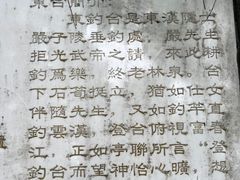 東台簡介
東釣台是東漢隱士
嚴子陵垂釣處。嚴先生
光武帝之請，來此耕
釣為樂，終老林泉。台
下石筍挺立，猶如仕女
伴隨先生，又如釣竿直
釣雲漢。登台俯 富春
江，正如亭聯所言：登
釣台神怡心曠，想